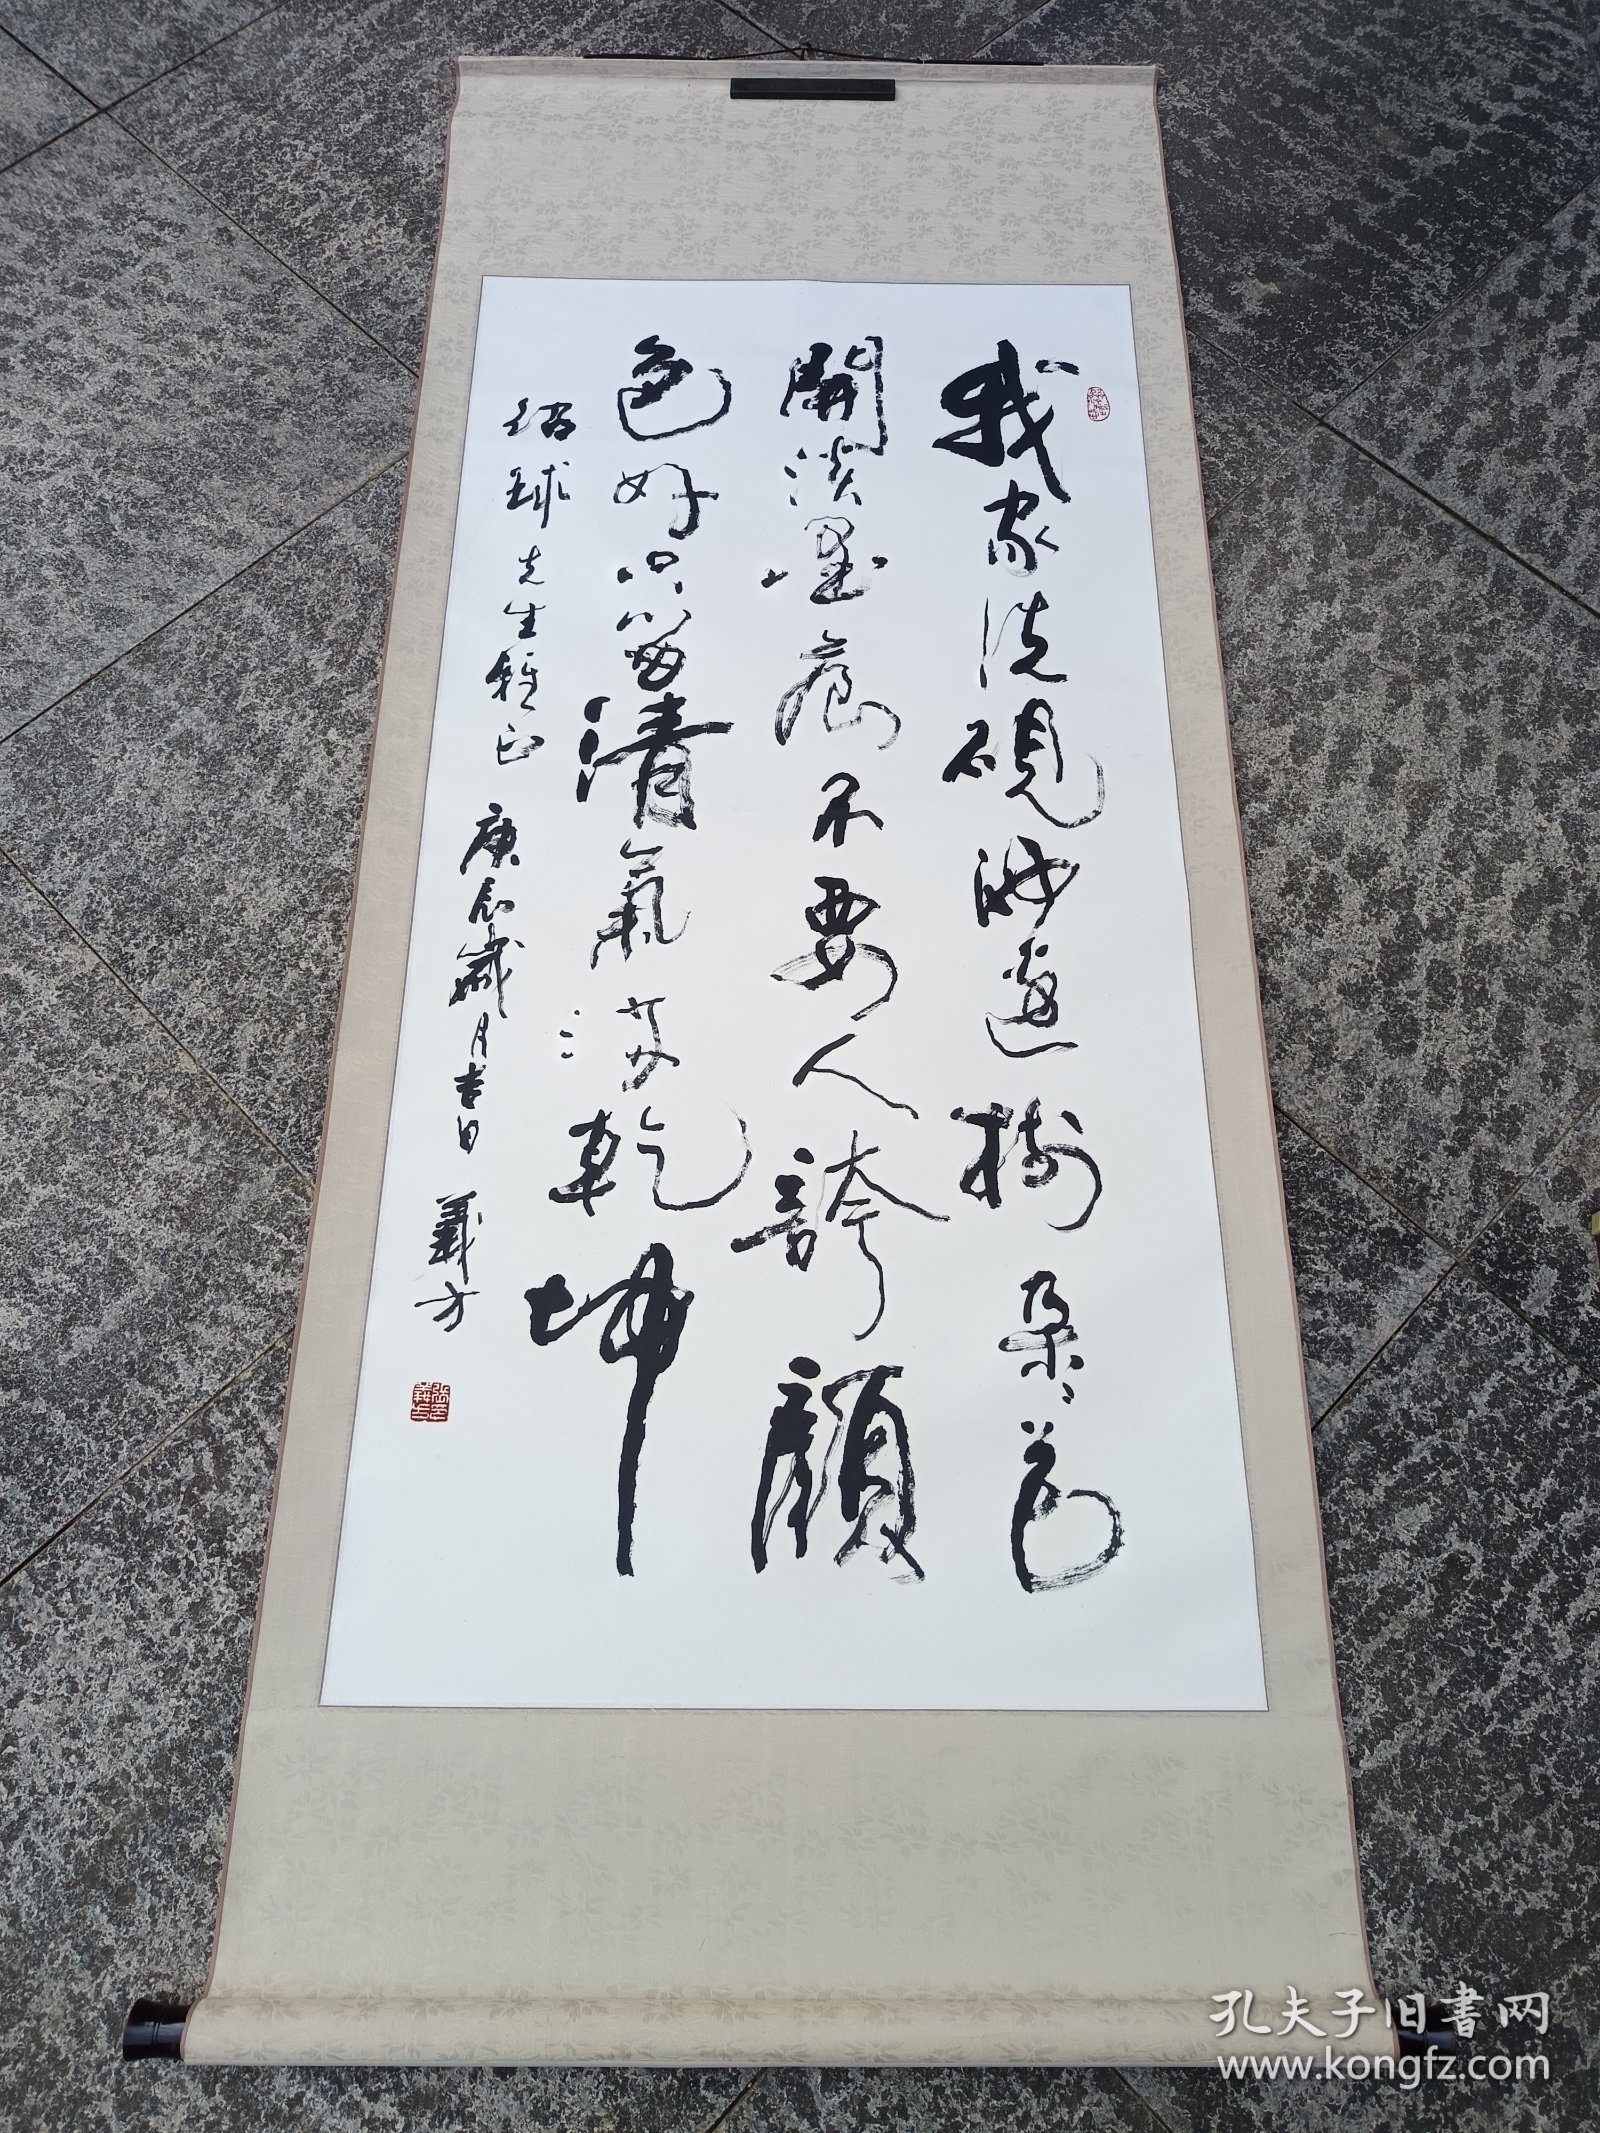 我家洗硯池邊樹朵〻花
開淡墨痕不要人誇顏
色好只留清氣滿乾坤
紹球先生雅正 庚辰歲月吉日 義方
孔夫子旧書网
www.kongfz.com